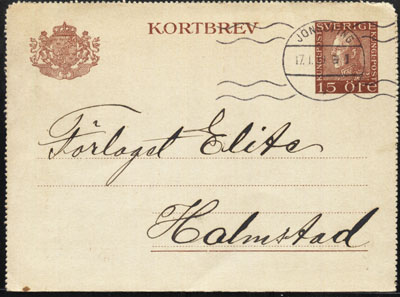 KORTBREV
SVERIGE
KUNGL.POST
15 ÖRE
Förlaget Elite
Halmstad